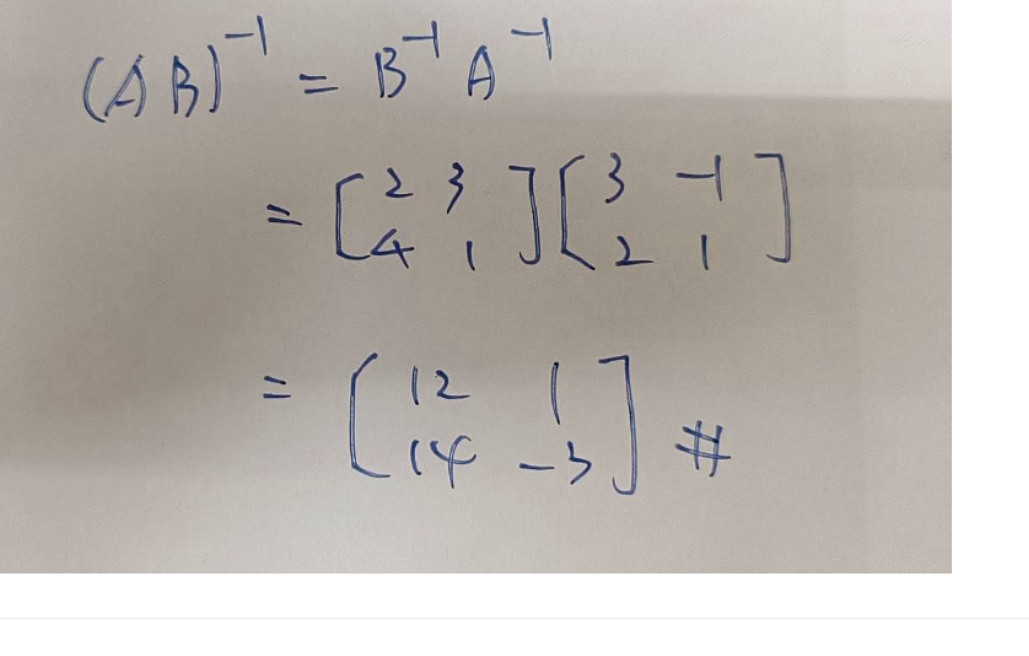 (AB)⁻¹ = B⁻¹ A⁻¹
= [2 3; 4 1] [3 -1; 2 1]
= [12 1; 14 -3] #